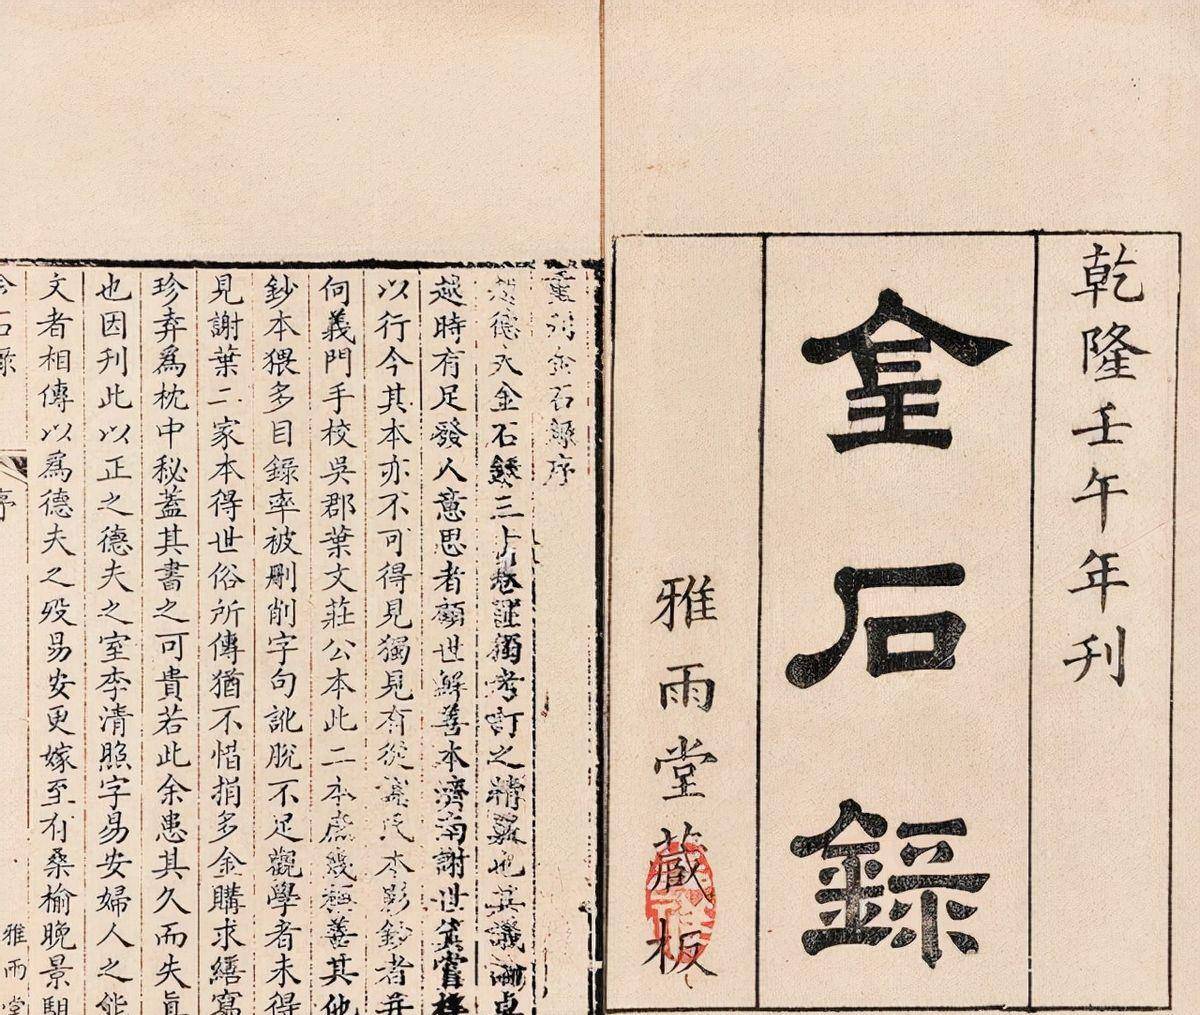 乾隆壬午年刊
金石錄
雅雨堂藏板
重刊金石錄序
趙德夫金石錄三十卷証獨考訂之精覈也其議論卓
越時有足發人意思者顧世鮮善本濟南謝世箕嘗梓
以行今其本亦不可得見獨見有從氏本影鈔者并
何義門手校吳郡葉文莊公本此二本庶幾稱善其他
鈔本猥多目錄率被刪削字句訛脫不足觀學者未得
見謝葉二家本得世俗所傳猶不惜捐多金購求繕寫
珍弆爲枕中秘蓋其書之可貴若此余患其久而失真
也因刊此以正之德夫之室李清照字易安婦人之能
文者相傳以爲德夫之歿易安更嫁至有桑榆晚景駔
金石錄 序 雅雨堂